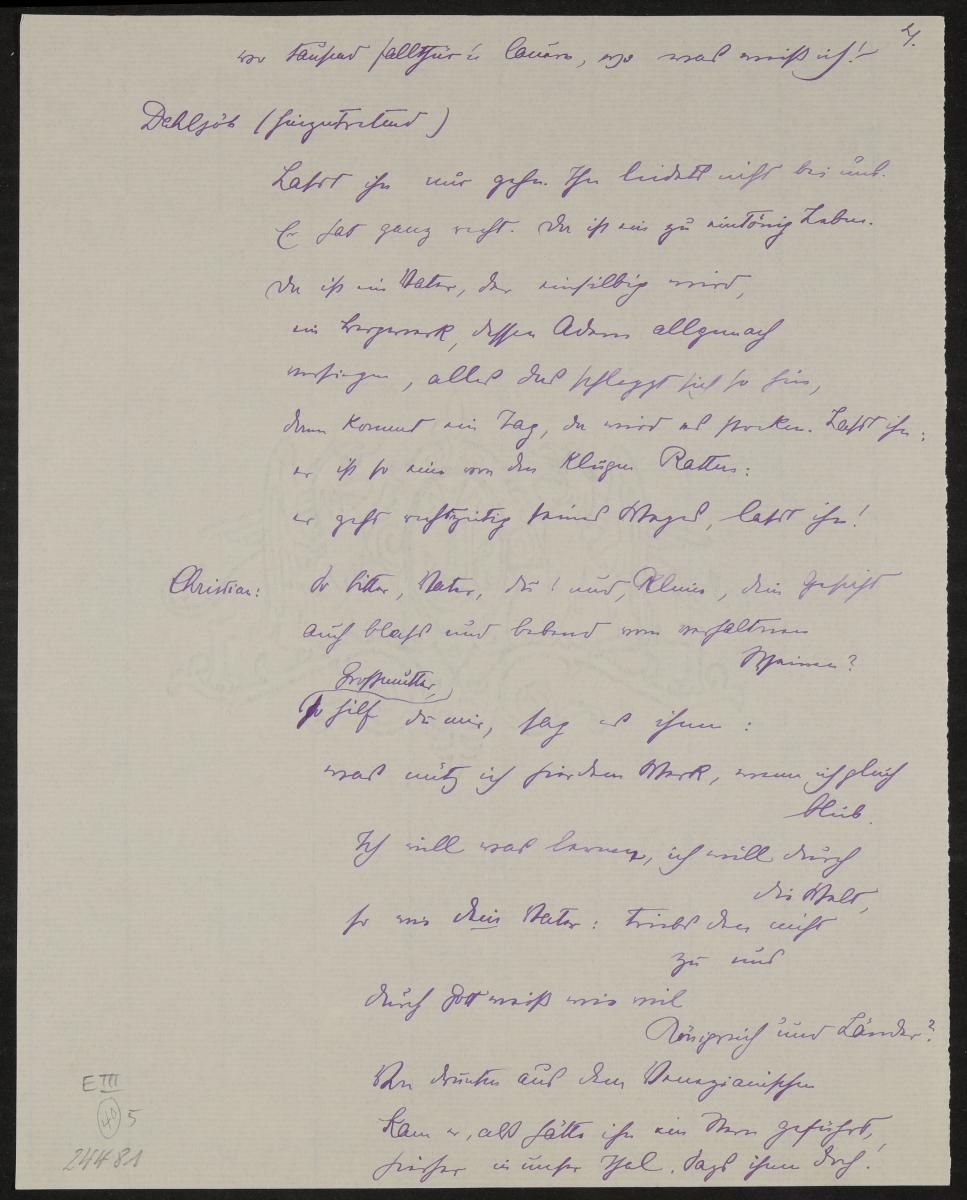 4.
wo tausend Fallthüren lauern, wo was weiß ich!
Dahlsjöh (hinzutretend)
Lasst ihn nur gehn. Ihn leidets nicht bei uns.
Er hat ganz recht. Da ist ein zu eintönig Leben.
Da ist ein Vater, der einsilbig wird,
ein Bergwerk, dessen Adern allgemach
versiegen, alles das schleppt sich so hin,
dann kommt ein Tag, da wird es stocken. Lasst ihn:
er ist so eine von den klugen Ratten:
er geht rechtzeitig seines Weges, lasst ihn!
Christian: So bitter, Vater, du! und, Kleine, dein Gesicht
auch blass und bebend vom verhaltnen
Weinen?
Grossmutter,
So hilf du mir, sag es ihnen:
was nütz ich hier dem Werk, wenn ich gleich
blieb.
Ich will was lernen, ich will durch
die Welt,
so wie dein Vater: triebs den nicht
zu uns
durch Gott weiß wie viel
Königreich und Länder?
Von drunten aus dem Venezianischen
kam er, als hätte ihn ein Stern geführt,
hierher in unser Thal. Sags ihnen doch!
E III
40 5
24481